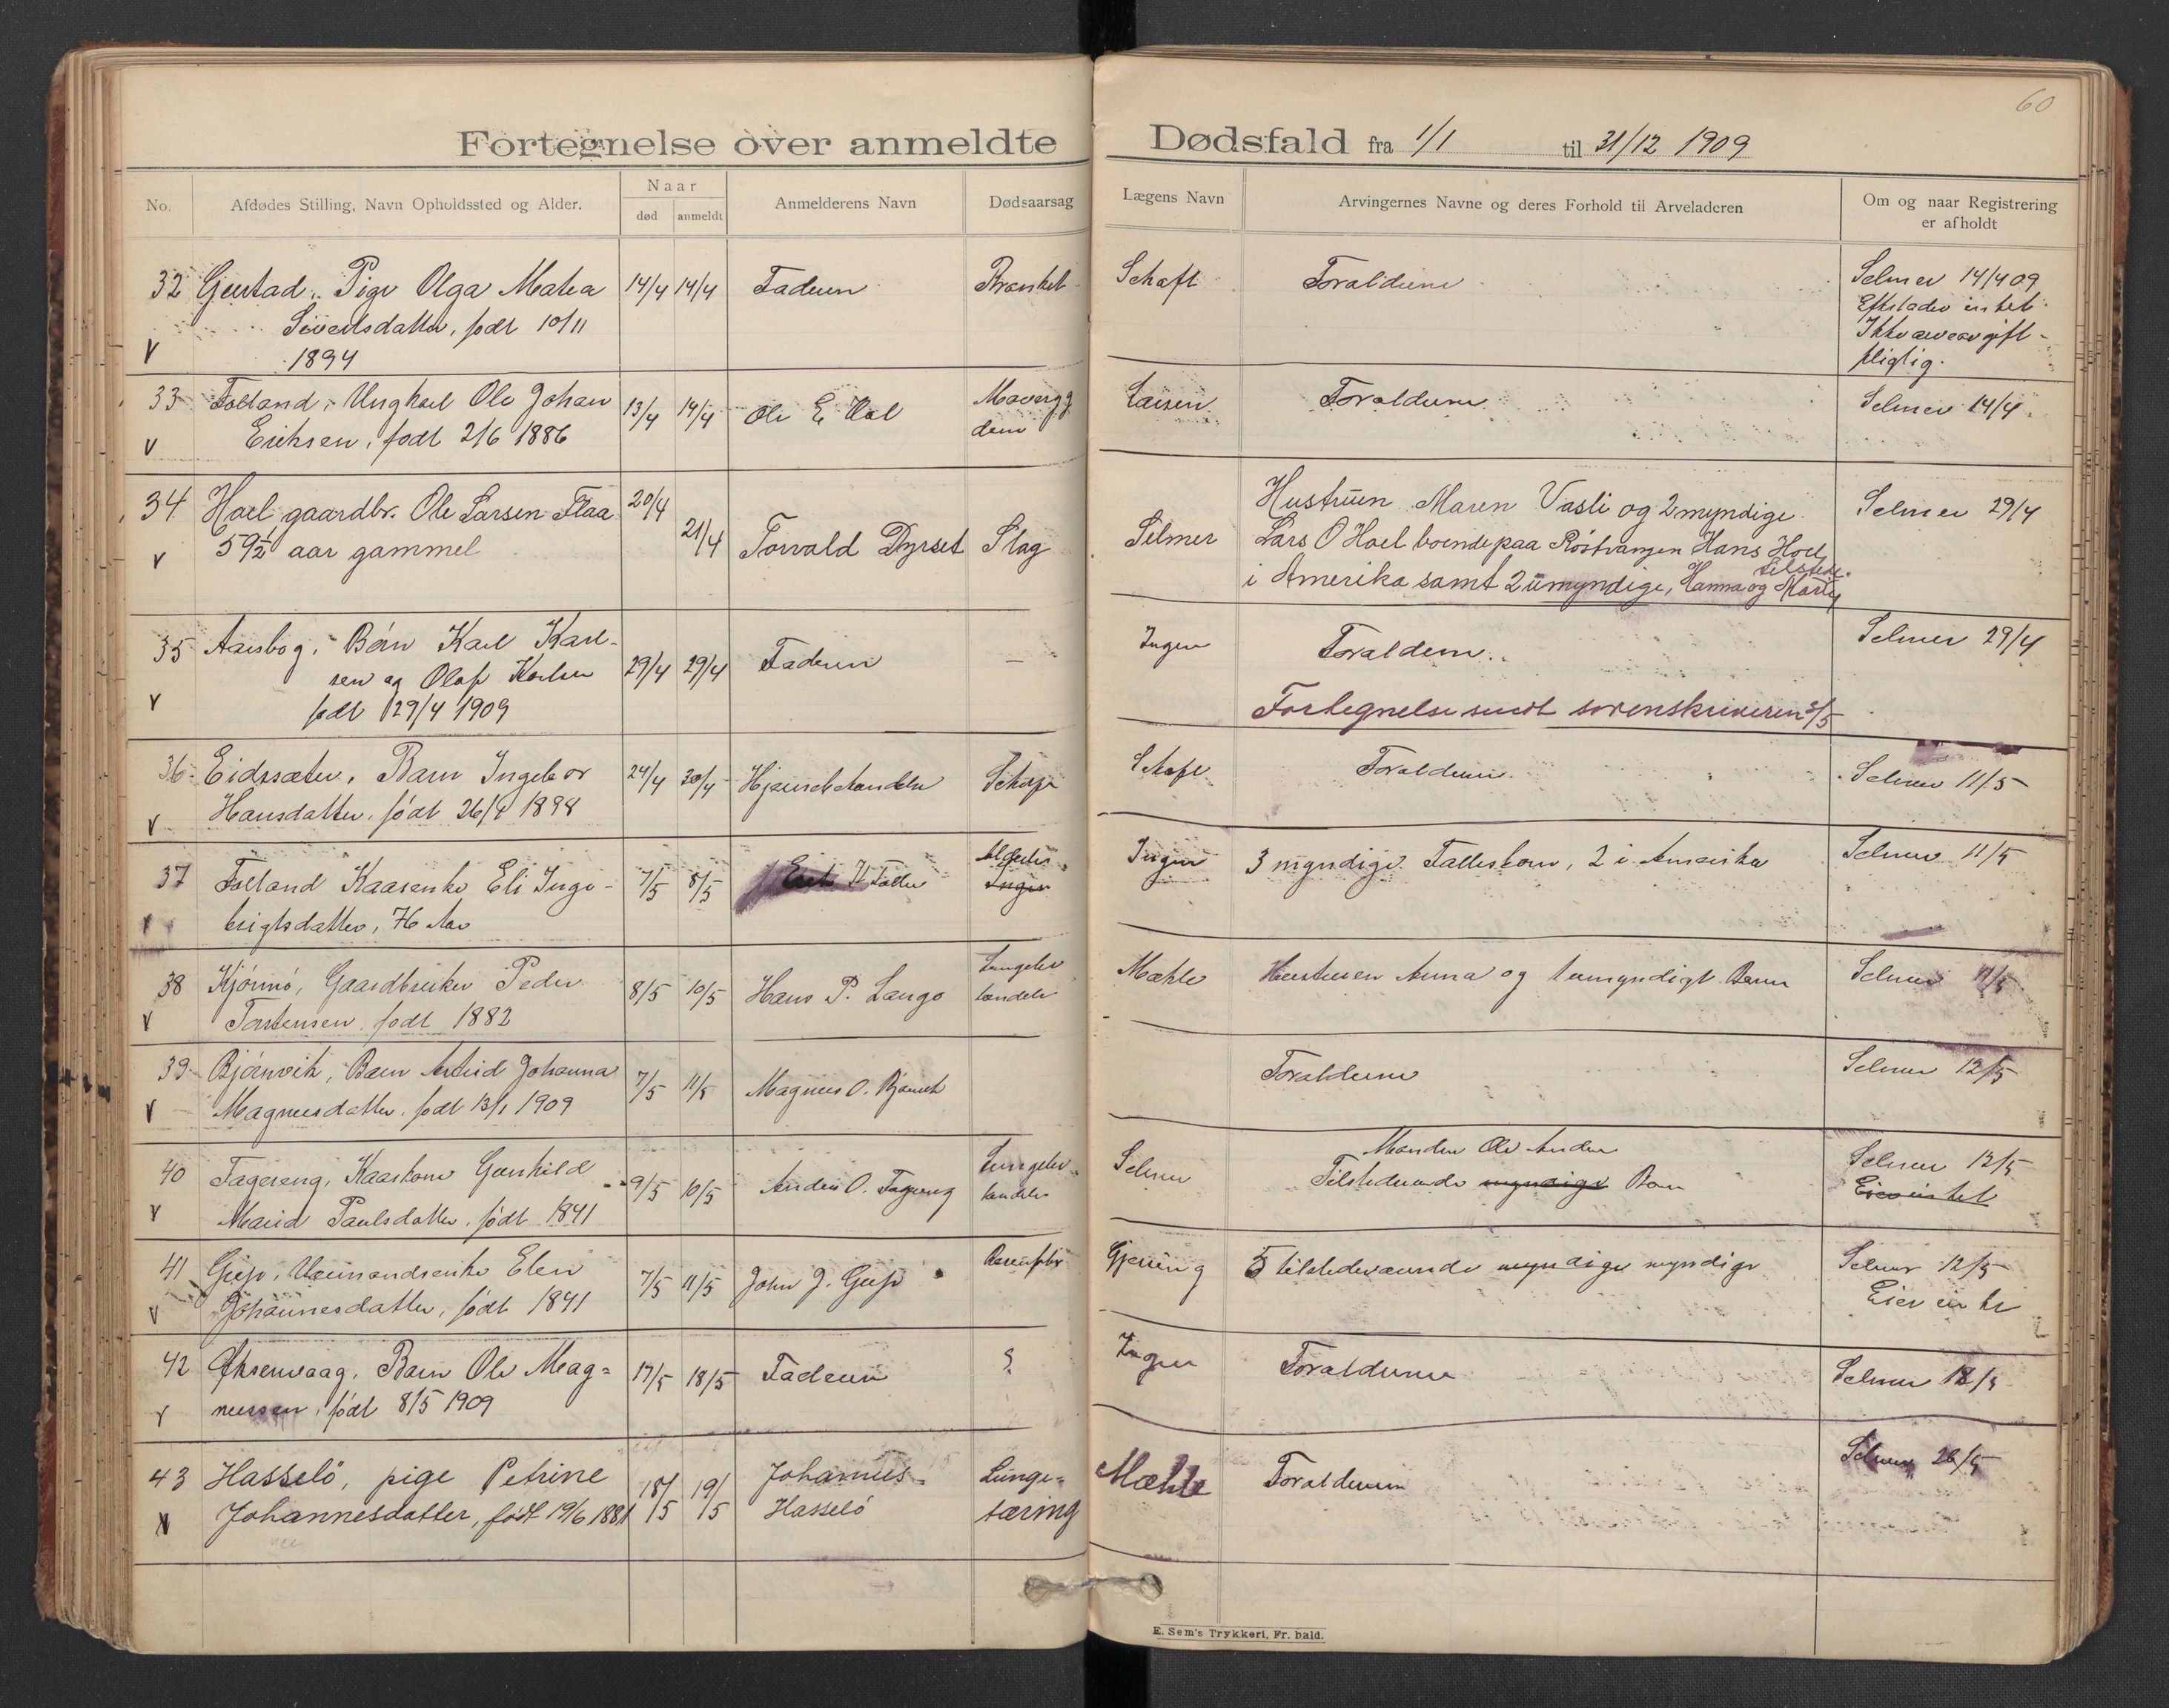 60
Fortegnelse over anmeldte Dødsfald fra 1/1 til 31/12 1909
No. Afdødes Stilling, Navn Opholdssted og Alder. Naar død anmeldt Anmelderens Navn Dødsaarsag Lægens Navn Arvingernes Navne og deres Forhold til Arveladeren Om og naar Registrering er afholdt
32 Pige Olga Malea 14/4 14/4 Faderen Schaft Forældrene Selmer 14/4 09
Sivertsdatter, født 10/11 Efterlader intet
V 1894 Ikke arveavgift-
pligtig.
33 Folland, Ungkarl Ole Johan 13/4 14/4 Ole E. Larsen Forældrene Selmer 14/4
V Eriksen, født 2/6 1886
34 Hoel gaardbr. Ole Larsen Flaa 20/4 21/4 Torvald Dyrset Slag Selmer Hustruen Maren Vasli og 2 myndige Selmer 29/4
V 59½ aar gammel Lars O Hoel boende paa Røstvangen Hans Hoel
i Amerika samt 2 umyndige, Hanna og Marit tilstede.
35 Børn Karl Karl- 29/4 29/4 Faderen — Ingen Forældrene Selmer 29/4
sen og Olaf Karlsen
V født 29/4 1909 Fortegnelse sendt sorenskriveren 3/5
36 Eidssæter, Barn Ingebor 24/4 30/4 Schaft Forældrene Selmer 11/5
V Hansdatter, født 26/4 1898
37 Folland Kaarenke Eli Inge- 7/5 8/5 Ingen 3 myndige Fællesbørn, 2 i Amerika Selmer 11/5
V brigtsdatter, 76 Aar
38 Kjørmø, Gaardbruker Peder 8/5 10/5 Hans P. Langø Mæhle Hustruen Anna og 1 umyndigt Barn Selmer 11/5
V Torstensen, født 1882
39 Bjørnvik, Barn Astrid Johanna 7/5 11/5 Magnus O. Bjørnvik Forældrene Selmer 12/5
V Magnusdatter, født 13/1 1909
40 Fagereng, Kaarkone Gunhild 9/5 10/5 Anders O. Fagereng Selmer Manden Ole Anders Selmer 12/5
V Marid Paulsdatter, født 1841 Tilstedeværende myndige Børn Eier intet
41 Elen 7/5 11/5 John J. Gjerving 5 tilstedeværende myndige myndige Selmer 12/5
V Johannesdatter, født 1841 Eier intet
42 Øksenvaag, Barn Ole Mag= 17/5 18/5 Faderen ? Ingen Forældrene Selmer 18/5
V nussen, født 8/5 1909
43 Hasselø, pige Petrine 18/5 19/5 Johannes= Hasselø Lunge= tæring Mæhle Forældrene Selmer 26/5
V Johannesdatter, født 19/6 1881
E. Sem's Trykkeri, Fr. hald.